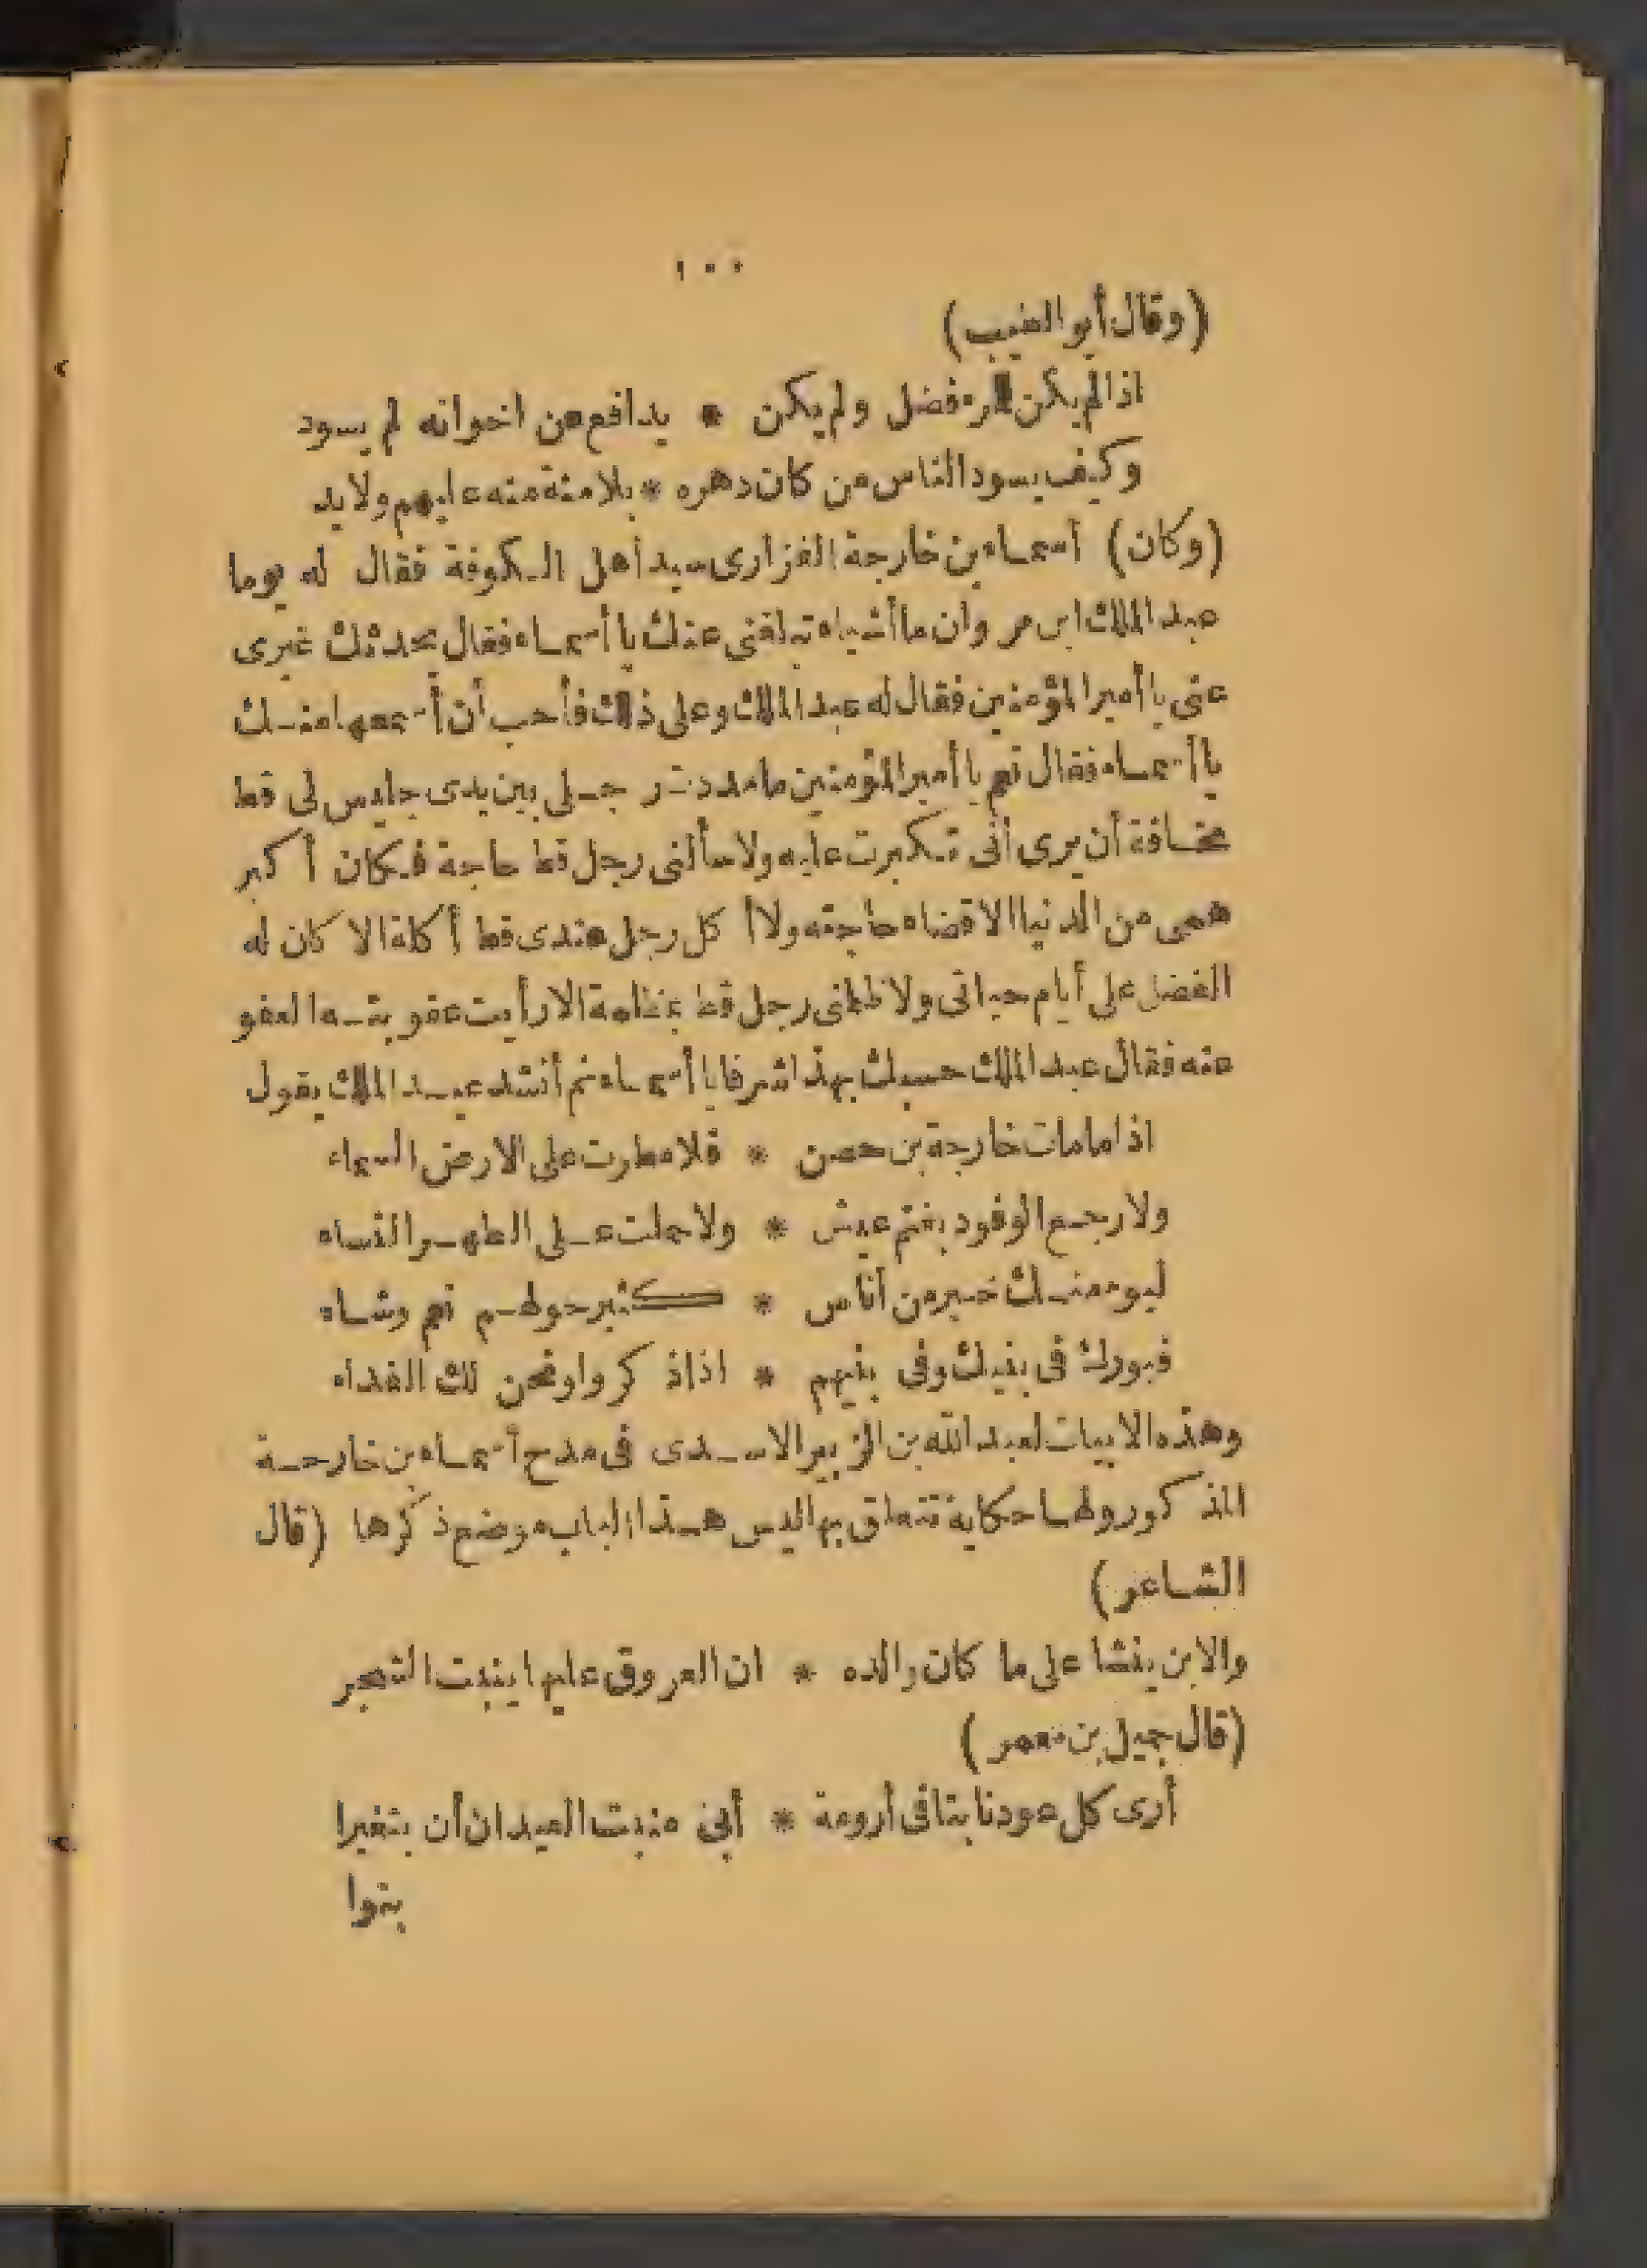 ١٠٠
(وقال أبو الطيب)
اذا لم يكن للمرء فضل ولم يكن * يدافع عن اخوانه لم يسود
وكيف يسود الناس من كان دهره * بلا منة منه عليهم ولا يد
(وكان) أسماء بن خارجة الفزارى سيد أهل الكوفة فقال له يوما
عبد الملك ابن مروان ما أشياء تبلغنى عنك يا أسماء فقال يحدثك غيرى
عنى يا أمير المؤمنين فقال له عبد الملك وعلى ذلك فأحب أن أسمعها منك
يا أسماء فقال نعم يا أمير المؤمنين ما مددت رجلى بين يدى جليس لى قط
مخافة أن يرى أنى تكبرت عليه ولا سألنى رجل قط حاجة فكان أكبر
همى من الدنيا الا قضاء حاجته ولا أكل رجل عندى قط أكلة الا كان له
الفضل على أيام حياتى ولا ظلمنى رجل قط بمظلمة الا رأيت عقوبته العفو
عنه فقال عبد الملك حسبك بهذا شرفا يا أسماء ثم أنشد عبد الملك يقول
اذا ما مات خارجة بن حصن * فلا مطرت على الارض السماء
ولا رجع الوفود بغنم عيش * ولا حملت على الطهر النساء
ليوم منك خير من أناس * كثير حولهم نعم وشاء
فبورك فى بنيك وفى بنيهم * اذا ذكروا ونحن لك الفداء
وهذه الابيات لعبد الله بن الزبير الاسدى فى مدح أسماء بن خارجة
المذكور ولها حكاية تتعلق بها ليس هذا الباب موضع ذكرها (قال
الشاعر)
والابن ينشا على ما كان والده * ان العروق عليها ينبت الشجر
(قال جميل بن معمر)
أرى كل عود نابتا فى أرومة * أبى منبت العيدان أن يتغيرا
بنوا